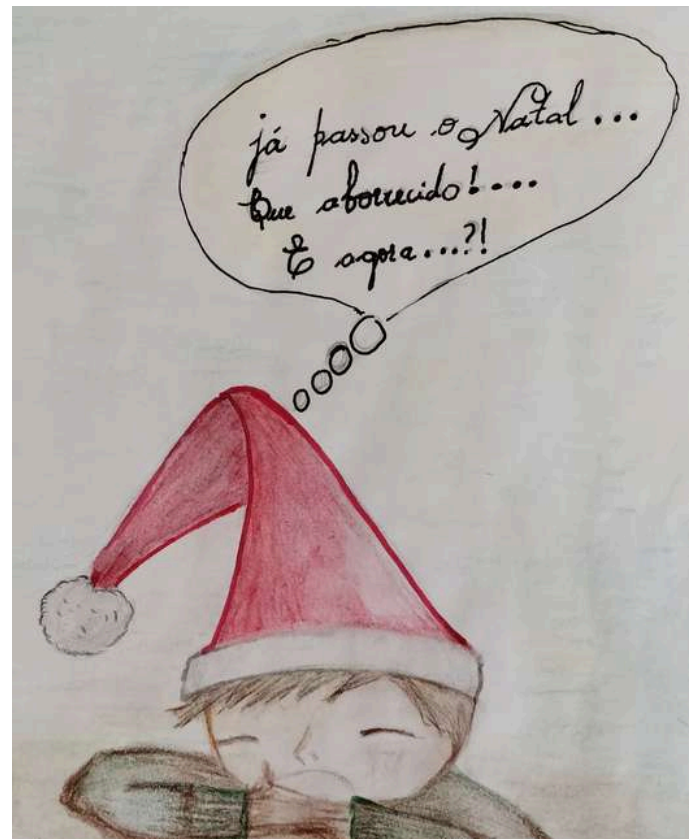 já passou o Natal...
Que aborrecido!...
E agora...?!